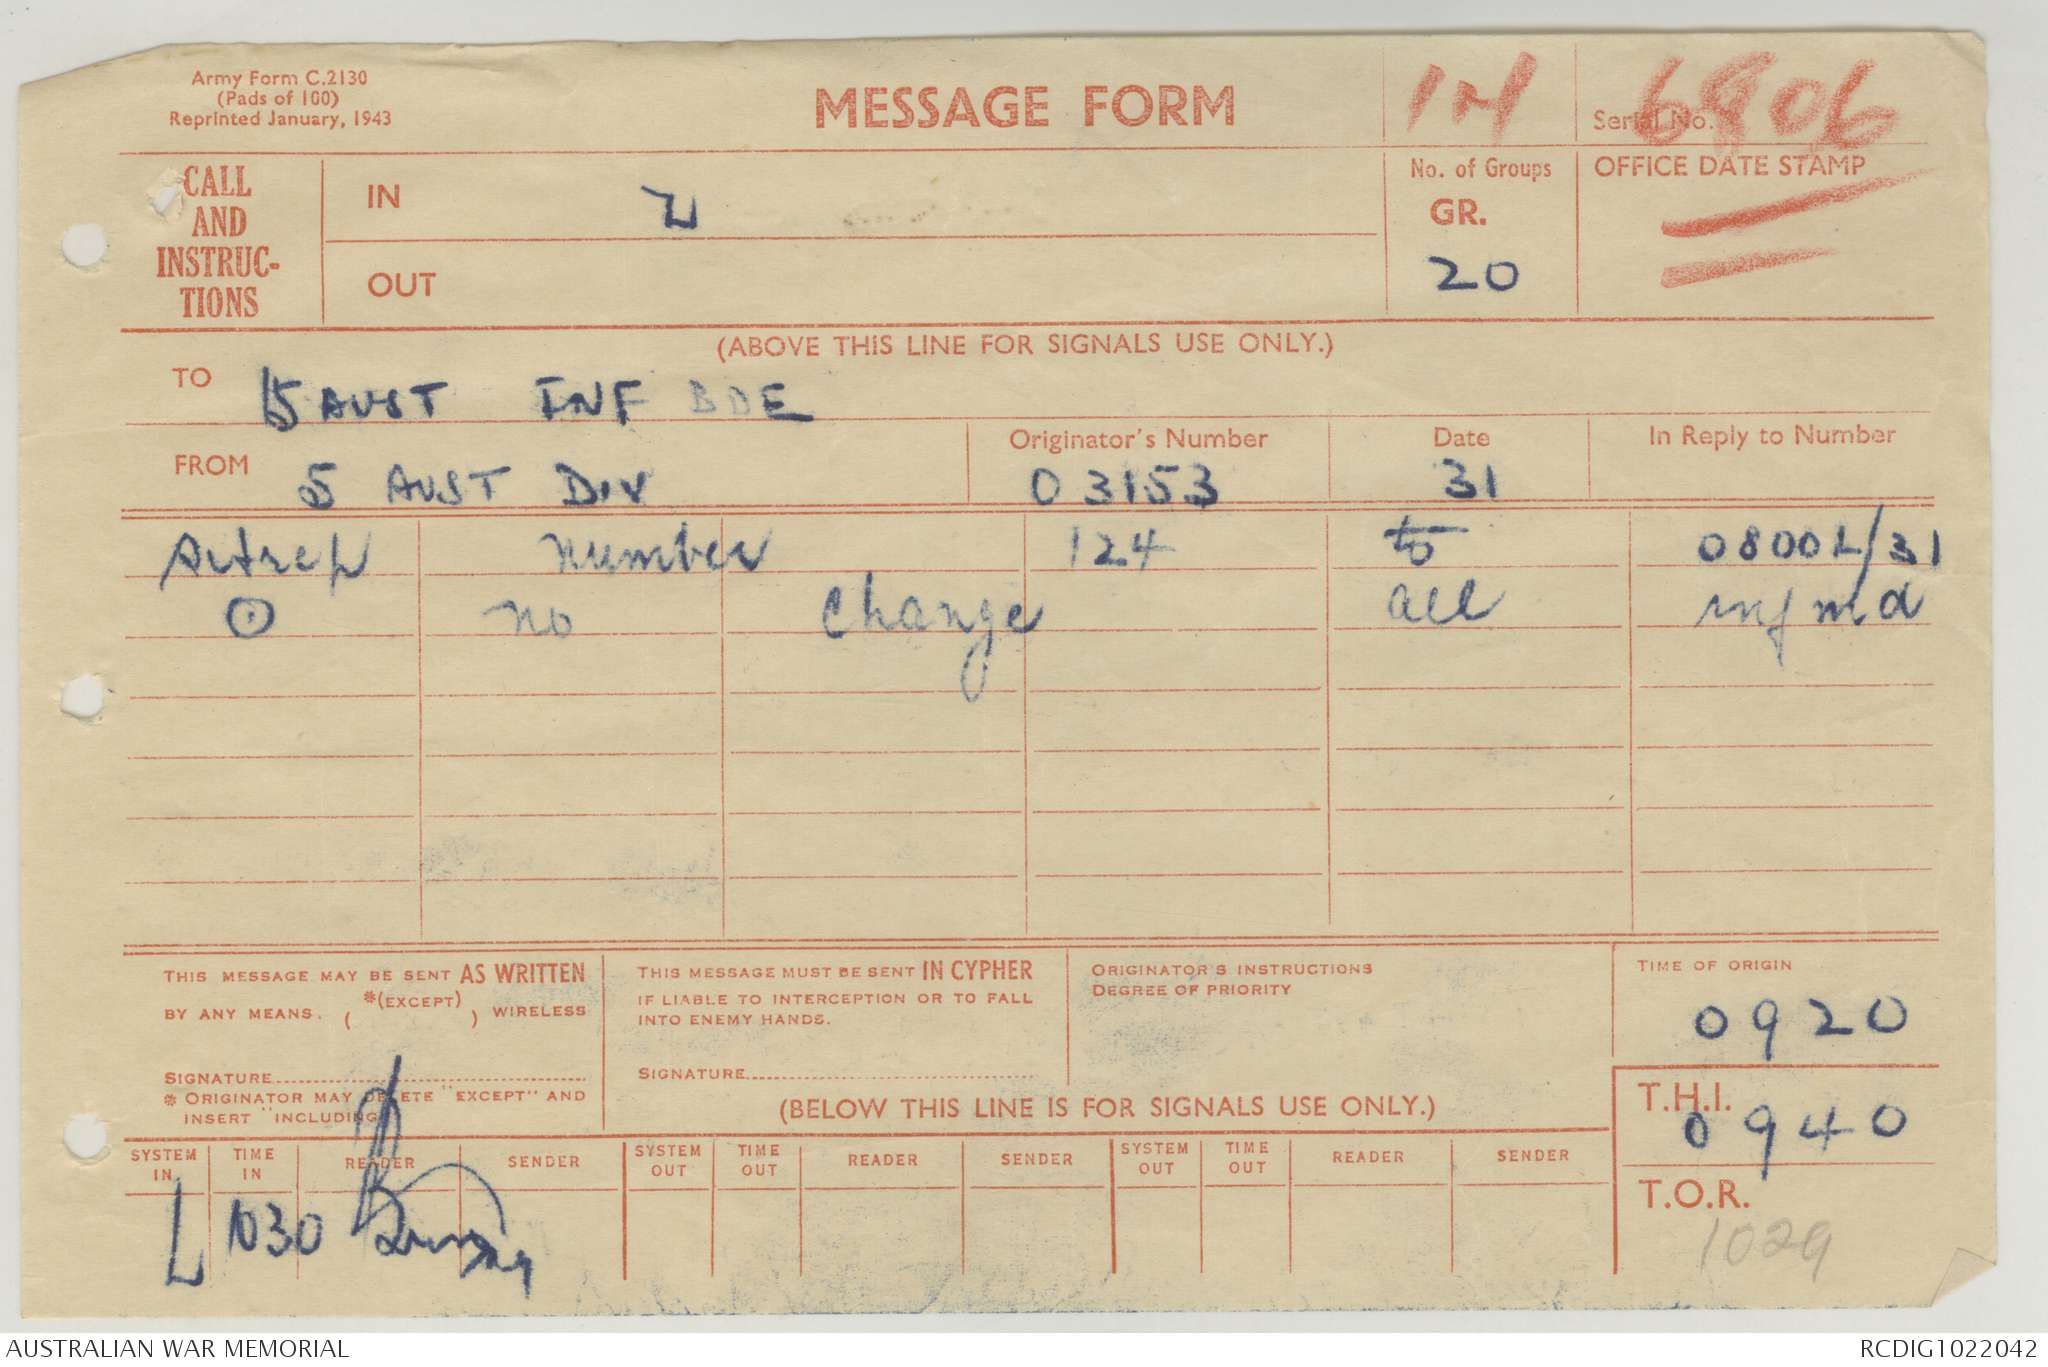 Army Form C.2130
(Pads of 100)
Reprinted January, 1943
MESSAGE FORM
Serial No.
6806
CALL
AND
INSTRUC-
TIONS
IN
OUT
No. of Groups
GR.
20
OFFICE DATE STAMP
(ABOVE THIS LINE FOR SIGNALS USE ONLY.)
TO 15 AUST INF BDE
FROM 5 AUST DIV
Originator's Number
03153
Date
31
In Reply to Number
Sitrep number 124 to 0800L/31
⊙ no change all infmd
THIS MESSAGE MAY BE SENT AS WRITTEN
BY ANY MEANS. ( *(EXCEPT) ) WIRELESS
SIGNATURE
* ORIGINATOR MAY DELETE "EXCEPT" AND
INSERT "INCLUDING
THIS MESSAGE MUST BE SENT IN CYPHER
IF LIABLE TO INTERCEPTION OR TO FALL
INTO ENEMY HANDS.
SIGNATURE
ORIGINATOR'S INSTRUCTIONS
DEGREE OF PRIORITY
TIME OF ORIGIN
0920
(BELOW THIS LINE IS FOR SIGNALS USE ONLY.)
T.H.I.
0940
T.O.R.
1029
SYSTEM IN TIME IN READER SENDER SYSTEM OUT TIME OUT READER SENDER SYSTEM OUT TIME OUT READER SENDER
L 1030
AUSTRALIAN WAR MEMORIAL
RCDIG1022042